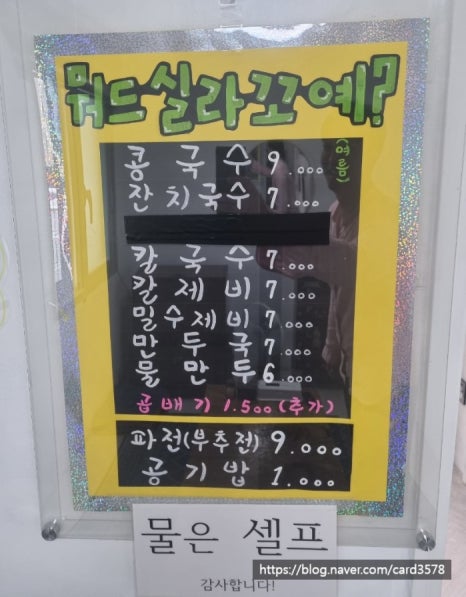 뭐드실라꼬예?
콩국수 9.000 (여름)
잔치국수 7.000
칼국수 7.000
칼제비 7.000
밀수제비 7.000
만두국 7.000
물만두 6.000
곱배기 1.500 (추가)
파전(부추전) 9.000
공기밥 1.000
물은 셀프
감사합니다!
https://blog.naver.com/card3578